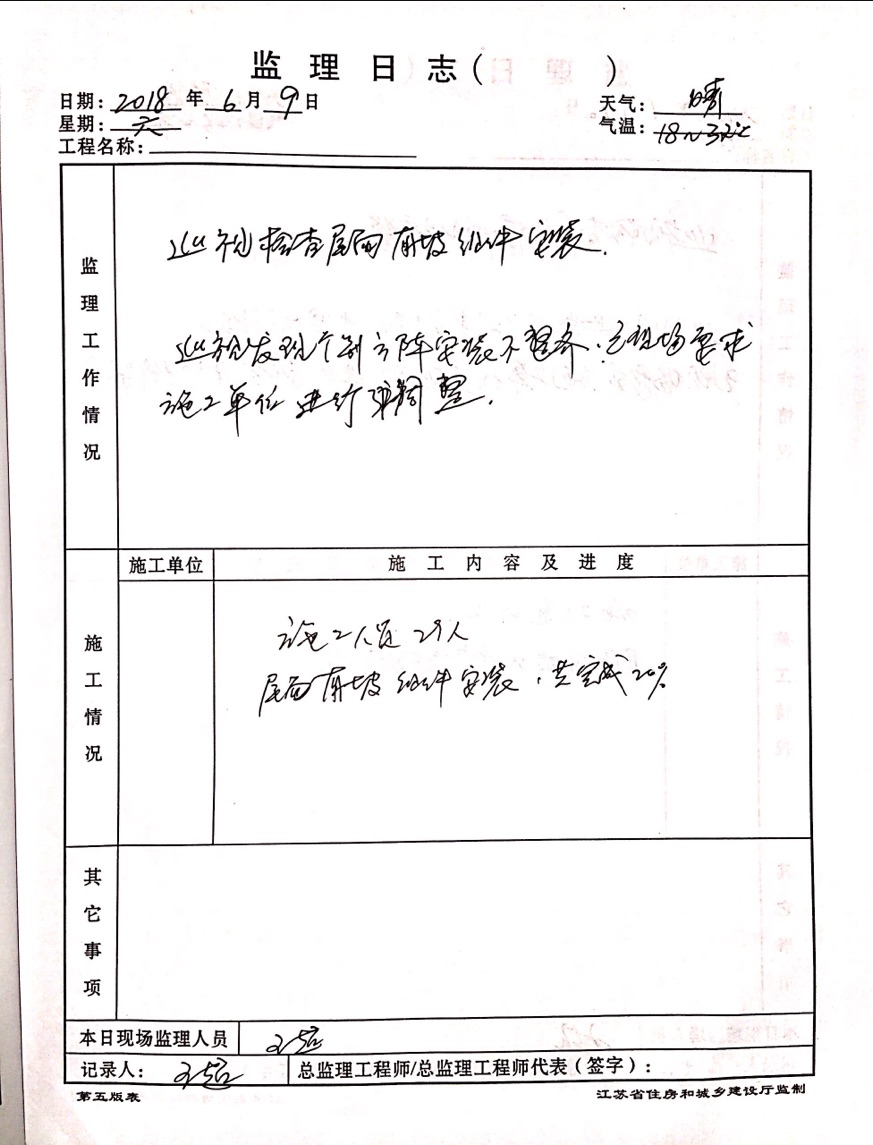 监理日志（ ）
日期：2018年6月9日 天气：晴
星期：六 气温：18~32℃
工程名称：
监理工作情况
巡视检查屋面南坡组件安装.
巡视发现个别方阵安装不整齐，已现场要求
施工单位进行调整.
施工单位 施工内容及进度
施工情况
施工人员29人
屋面南坡组件安装，共完成20%
其它事项
本日现场监理人员 王超
记录人：王超 总监理工程师/总监理工程师代表（签字）：
第五版表 江苏省住房和城乡建设厅监制